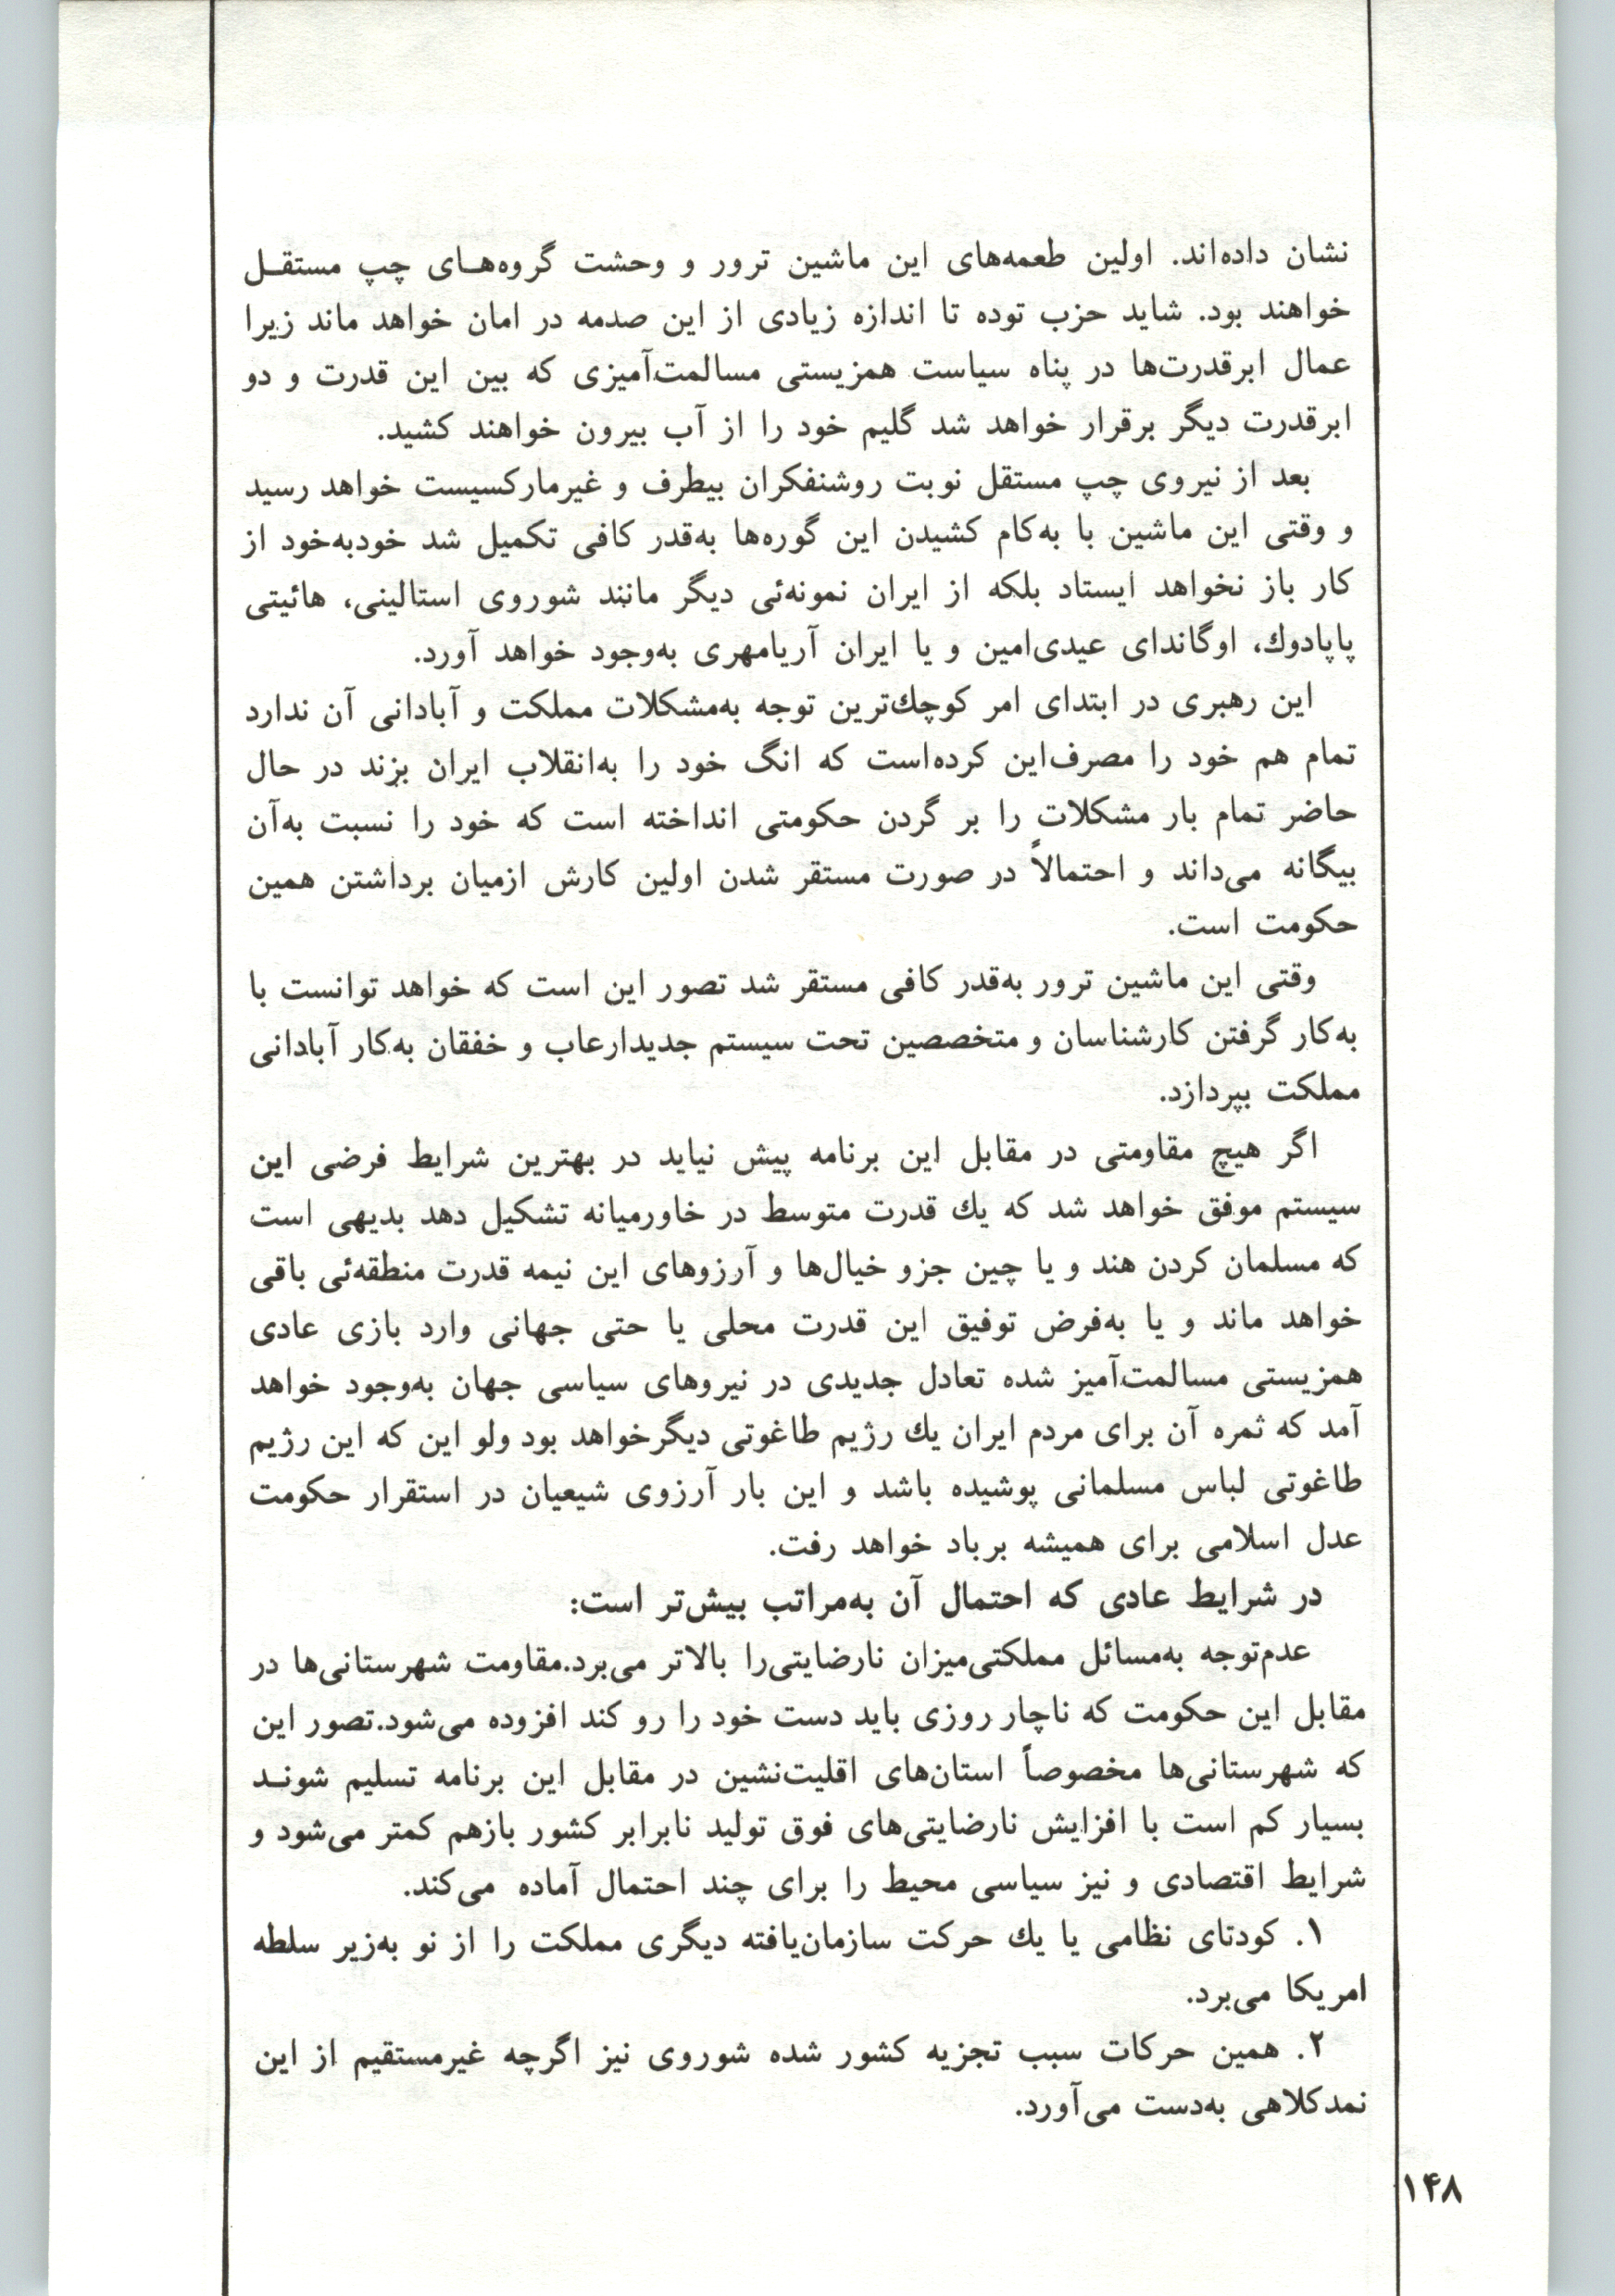 نشان داده‌اند. اولین طعمه‌های این ماشین ترور و وحشت گروه‌هـای چپ مستقـل
خواهند بود. شاید حزب توده تا اندازه زیادی از این صدمه در امان خواهد ماند زیرا
عمال ابرقدرت‌ها در پناه سیاست همزیستی مسالمت‌آمیزی که بین این قدرت و دو
ابرقدرت دیگر برقرار خواهد شد گلیم خود را از آب بیرون خواهند کشید.
بعد از نیروی چپ مستقل نوبت روشنفکران بیطرف و غیرمارکسیست خواهد رسید
و وقتی این ماشین با به‌کام کشیدن این گوره‌ها به‌قدر کافی تکمیل شد خودبه‌خود از
کار باز نخواهد ایستاد بلکه از ایران نمونه‌ئی دیگر مانند شوروی استالینی، هائیتی
پاپادوك، اوگاندای عیدی‌امین و یا ایران آریامهری به‌وجود خواهد آورد.
این رهبری در ابتدای امر کوچك‌ترین توجه به‌مشکلات مملکت و آبادانی آن ندارد
تمام هم خود را مصرف‌این کرده‌است که انگ خود را به‌انقلاب ایران بزند در حال
حاضر تمام بار مشکلات را بر گردن حکومتی انداخته است که خود را نسبت به‌آن
بیگانه می‌داند و احتمالاً در صورت مستقر شدن اولین کارش ازمیان برداشتن همین
حکومت است.
وقتی این ماشین ترور به‌قدر کافی مستقر شد تصور این است که خواهد توانست با
به‌کار گرفتن کارشناسان و متخصصین تحت سیستم جدیدارعاب و خفقان به‌کار آبادانی
مملکت بپردازد.
اگر هیچ مقاومتی در مقابل این برنامه پیش نیاید در بهترین شرایط فرضی این
سیستم موفق خواهد شد که یك قدرت متوسط در خاورمیانه تشکیل دهد بدیهی است
که مسلمان کردن هند و یا چین جزو خیال‌ها و آرزوهای این نیمه قدرت منطقه‌ئی باقی
خواهد ماند و یا به‌فرض توفیق این قدرت محلی یا حتی جهانی وارد بازی عادی
همزیستی مسالمت‌آمیز شده تعادل جدیدی در نیروهای سیاسی جهان به‌وجود خواهد
آمد که ثمره آن برای مردم ایران یك رژیم طاغوتی دیگرخواهد بود ولو این که این رژیم
طاغوتی لباس مسلمانی پوشیده باشد و این بار آرزوی شیعیان در استقرار حکومت
عدل اسلامی برای همیشه برباد خواهد رفت.
در شرایط عادی که احتمال آن به‌مراتب بیش‌تر است:
عدم‌توجه به‌مسائل مملکتی‌میزان نارضایتی‌را بالاتر می‌برد.مقاومت شهرستانی‌ها در
مقابل این حکومت که ناچار روزی باید دست خود را رو کند افزوده می‌شود.تصور این
که شهرستانی‌ها مخصوصاً استان‌های اقلیت‌نشین در مقابل این برنامه تسلیم شونـد
بسیار کم است با افزایش نارضایتی‌های فوق تولید نابرابر کشور بازهم کمتر می‌شود و
شرایط اقتصادی و نیز سیاسی محیط را برای چند احتمال آماده می‌کند.
۱. کودتای نظامی یا یك حرکت سازمان‌یافته دیگری مملکت را از نو به‌زیر سلطه
امریکا می‌برد.
۲. همین حرکات سبب تجزیه کشور شده شوروی نیز اگرچه غیرمستقیم از این
نمدکلاهی به‌دست می‌آورد.
۱۴۸